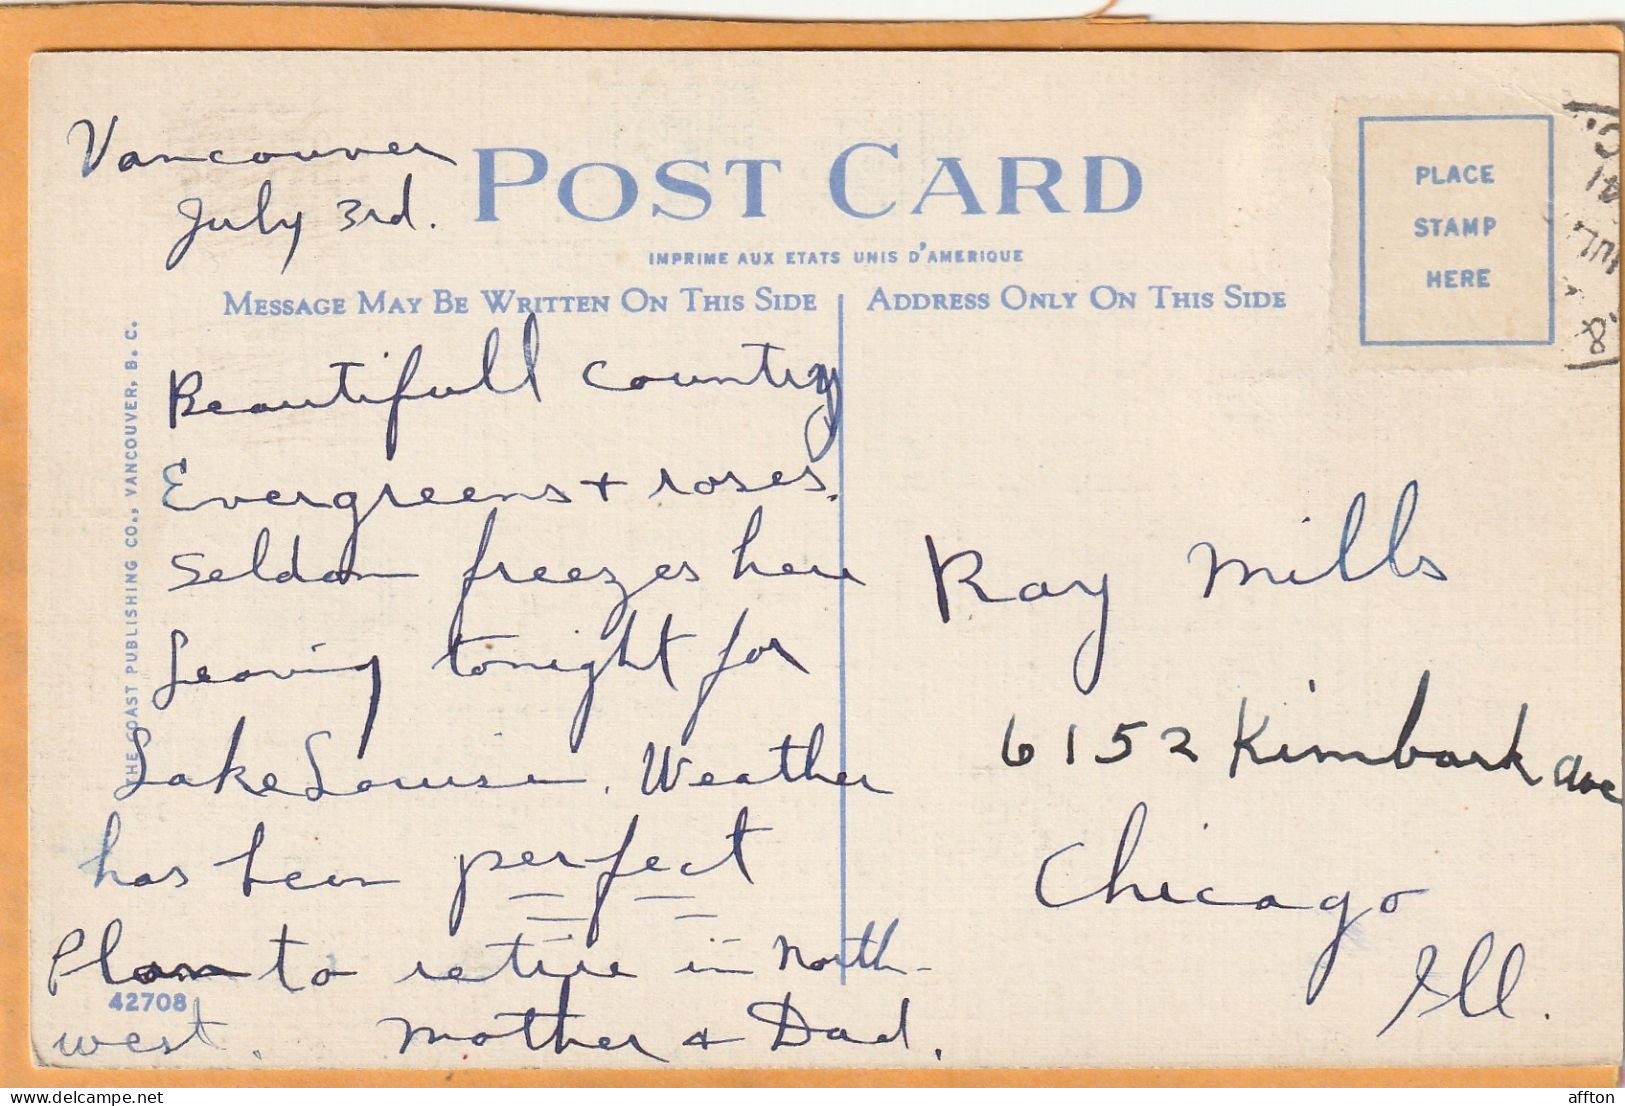 Vancouver
July 3rd.
POST CARD
IMPRIME AUX ETATS UNIS D'AMERIQUE
MESSAGE MAY BE WRITTEN ON THIS SIDE
ADDRESS ONLY ON THIS SIDE
PLACE
STAMP
HERE
THE COAST PUBLISHING CO., VANCOUVER, B. C.
Beautifull country
Evergreens + roses.
Seldom freezes here
Leaving tonight for
Lake Louise. Weather
has been perfect
Plan to retire in North-
west. Mother + Dad.
42708
Ray Mills
6152 Kimbark Ave
Chicago
Ill.
affton